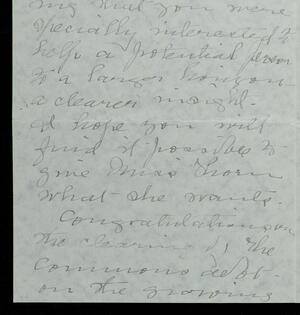 ing that you were
specially interested to
help a potential person
to a larger horizon
a clearer insight.
I hope you will
find it possible to
give Miss Thorn
what she wants.
Congratulations on
the clearing of the
commons debt -
on the growing